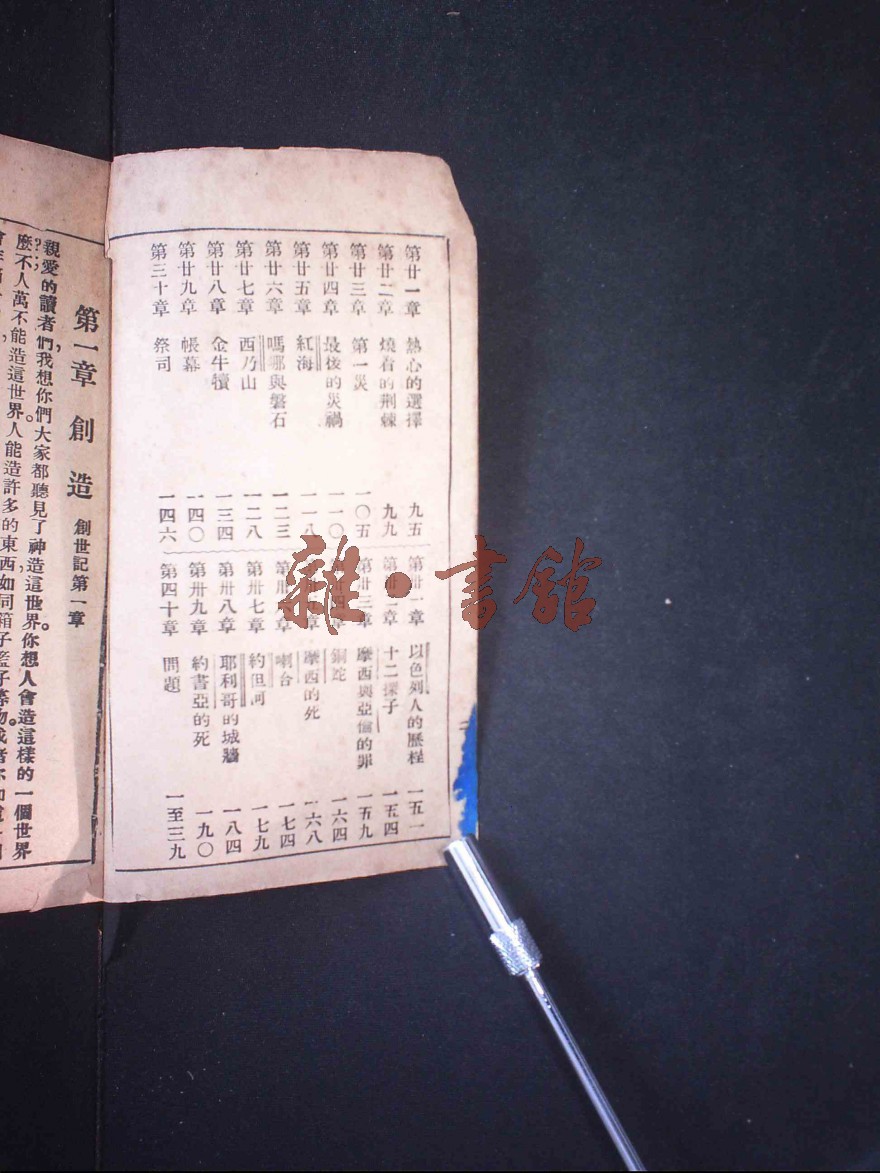 第廿一章 熱心的選擇 九五
第廿二章 燒着的荆棘 九九
第廿三章 第一災 一〇五
第廿四章 最後的災禍 一一〇
第廿五章 紅海 一一八
第廿六章 嗎哪與磐石 一二三
第廿七章 西乃山 一二八
第廿八章 金牛犢 一三四
第廿九章 帳幕 一四〇
第三十章 祭司 一四六
第卅一章 以色列人的歷程 一五一
第卅二章 十二探子 一五四
第卅三章 摩西與亞倫的罪 一五九
第卅四章 銅蛇 一六四
摩西的死 一六八
喇合 一七四
第卅七章 約但河 一七九
第卅八章 耶利哥的城牆 一八四
第卅九章 約書亞的死 一九〇
第四十章 問題 一至三九
二
第一章 創造 創世記第一章
親愛的讀者,們我想你們大家都聽見了神造這世界。你想人會造這樣的一個世界
麽不人萬不能造這世界。人能造許多的東西,如同箱子
雜·書館